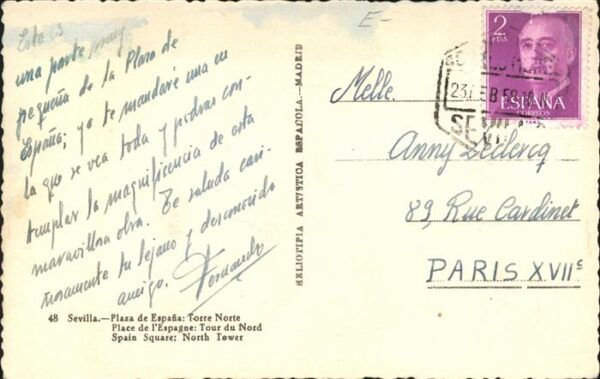 Esta es
una parte muy
pequeña de la Plaza de
España; ya te mandaré una en
la que se vea toda y podras con-
templar la magnificencia de esta
maravillosa obra. Te saluda cari-
ñosamente tu lejano y desconocido
amigo. Fernando
48 Sevilla.—Plaza de España: Torre Norte
Place de l'Espagne: Tour du Nord
Spain Square: North Tower
HELIOTIPIA ARTÍSTICA ESPAÑOLA.—MADRID
E-
2
PTAS
ESPAÑA
CORREOS
23 FEB 59
SEVILLA
Melle.
Anny Leclercq
89, Rue Cardinet
PARIS XVIIe